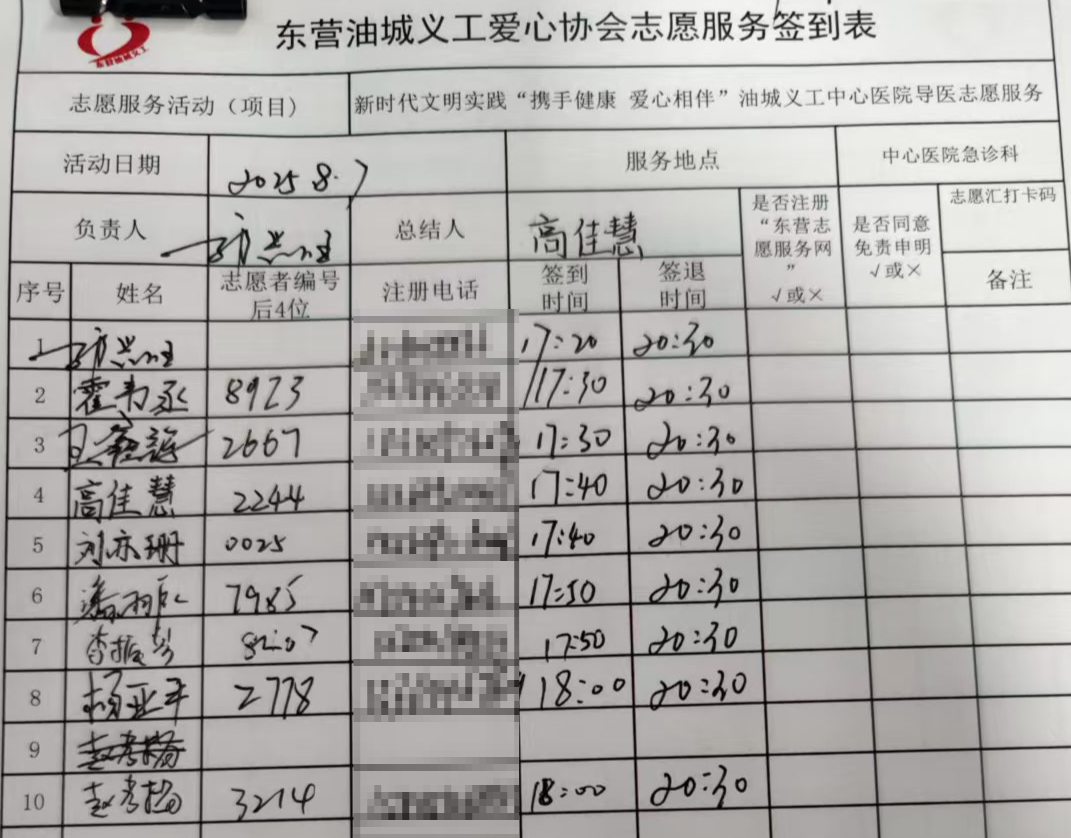 东营油城义工
东营油城义工爱心协会志愿服务签到表
志愿服务活动（项目） 新时代文明实践“携手健康 爱心相伴”油城义工中心医院导医志愿服务
活动日期 2025 8.7 服务地点 中心医院急诊科
负责人 总结人 高佳慧 是否注册“东营志愿服务网” √或× 是否同意免责申明 √或× 志愿汇打卡码
序号 姓名 志愿者编号后4位 注册电话 签到时间 签退时间 备注
1 17:20 20:30
2 8923 17:30 20:30
3 2667 17:30 20:30
4 高佳慧 2244 17:40 20:30
5 刘亦珊 0025 17:40 20:30
6 7985 17:50 20:30
7 李振彭 17:50 20:30
8 杨亚平 2778 18:00 20:30
9
10 3214 18:00 20:30